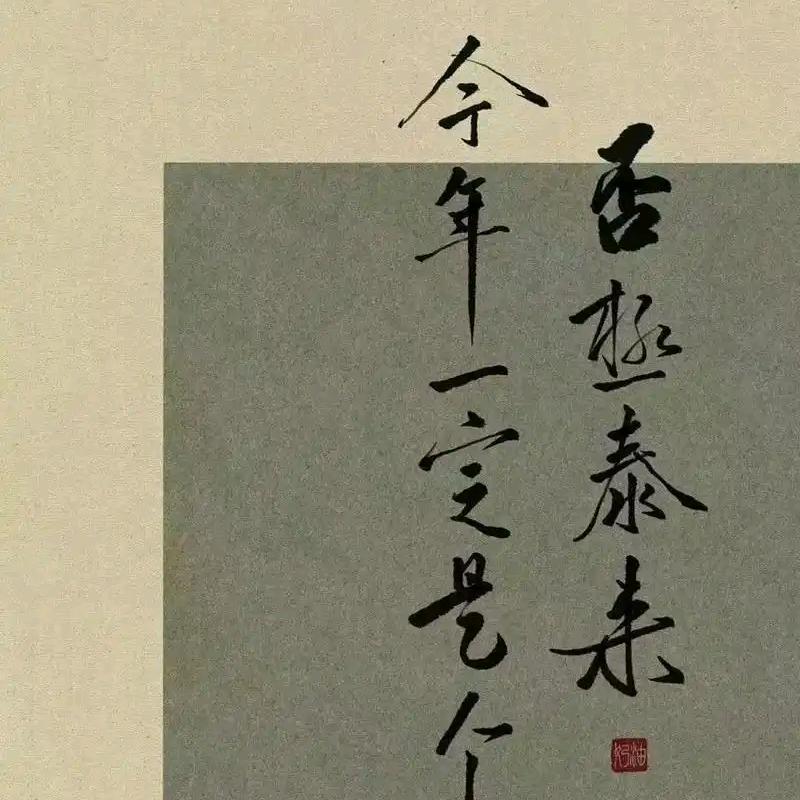 否極泰来
今年一定是个